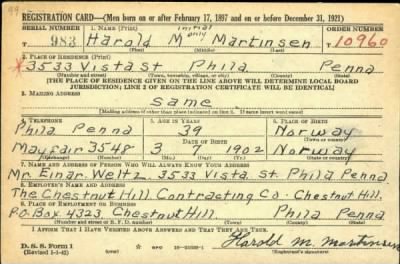 REGISTRATION CARD—(Men born on or after February 17, 1897 and on or before December 31, 1921)
SERIAL NUMBER 1. NAME (Print) ORDER NUMBER
initial only
983 Harald M Martinsen 10960
(First) (Middle) (Last)
2. PLACE OF RESIDENCE (Print)
x 3533 Vista St Phila Penna
(Number and street) (Town, township, village, or city) (County) (State)
[THE PLACE OF RESIDENCE GIVEN ON THE LINE ABOVE WILL DETERMINE LOCAL BOARD
JURISDICTION; LINE 2 OF REGISTRATION CERTIFICATE WILL BE IDENTICAL]
3. MAILING ADDRESS
Same
(Mailing address if other than place indicated on line 2. If same insert word same)
4. TELEPHONE 5. AGE IN YEARS 6. PLACE OF BIRTH
Phila Penna 39 Norway
DATE OF BIRTH
Mayfair 3548 3 7 1902 Norway
(Exchange) (Number) (Mo.) (Day) (Yr.) (State or country)
7. NAME AND ADDRESS OF PERSON WHO WILL ALWAYS KNOW YOUR ADDRESS
Mr. Einar Weltz 3533 Vista St. Phila Penna
8. EMPLOYER'S NAME AND ADDRESS
The Chestnut Hill Contracting Co. Chestnut Hill.
9. PLACE OF EMPLOYMENT OR BUSINESS
P.O. Box 4323 Chestnut Hill. Phila Penna
(Number and street or R. F. D. number) (Town) (County) (State)
I AFFIRM THAT I HAVE VERIFIED ABOVE ANSWERS AND THAT THEY ARE TRUE.
D. S. S. Form 1
(Revised 1-1-42) GPO 16-21630-1
Harold M. Martinsen
(Registrant's signature)